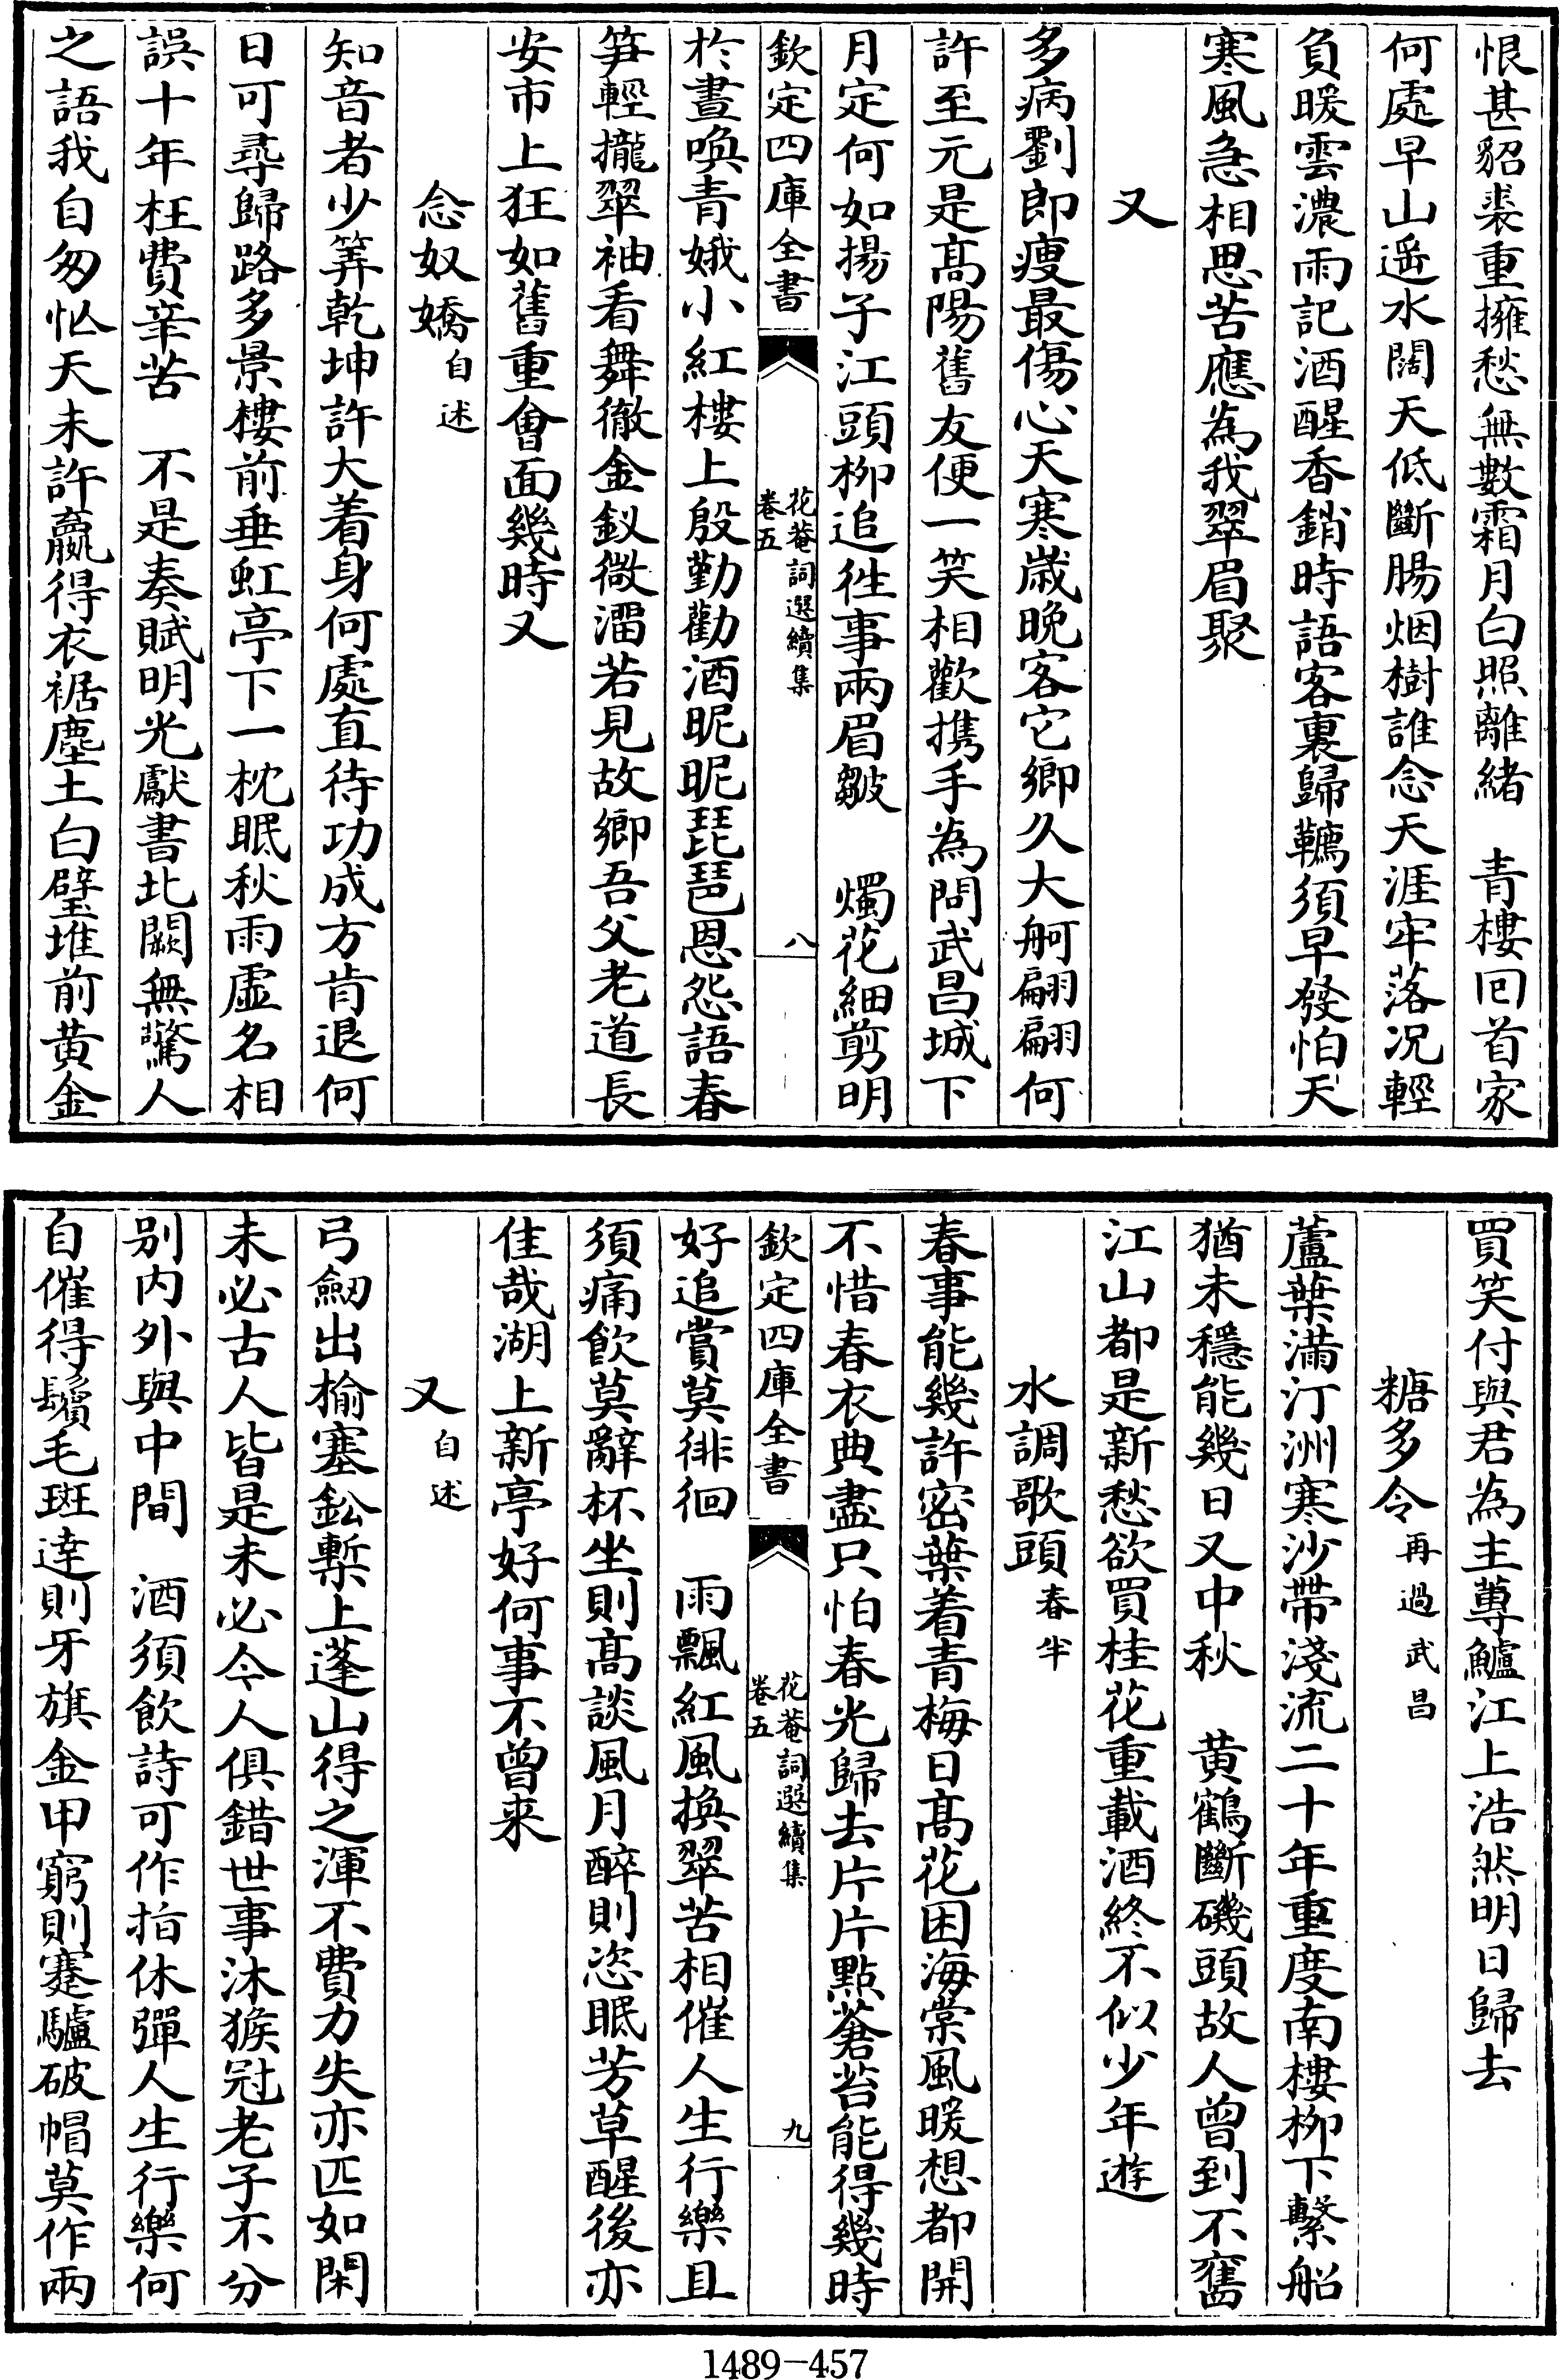 恨甚貂裘重擁愁無數霜月白照離緒　青樓回首家
何處早山遥水闊天低斷腸烟樹誰念天涯牢落况輕
負暖雲濃雨記酒醒香銷時語客裏歸韉須早發怕天
寒風急相思苦應為我翠眉聚
又
多病劉郎瘦最傷心天寒歲晚客它鄉久大舸翩翩何
許至元是髙陽舊友便一笑相歡携手為問武昌城下
月定何如揚子江頭柳追徃事兩眉皺　燭花細剪明
欽定四庫全書
花菴詞選續集
卷五
八
於晝喚青娥小紅樓上殷勤勸酒昵昵琵琶恩怨語春
笋輕攏翠袖看舞徹金釵微溜若見故鄉吾父老道長
安市上狂如舊重會面幾時又
念奴嬌自述
知音者少筭乾坤許大着身何處直待功成方肯退何
日可尋歸路多景樓前垂虹亭下一枕眠秋雨虛名相
誤十年枉費辛苦　不是奏賦明光獻書北闕無驚人
之語我自匆忙天未許贏得衣裾塵土白璧堆前黄金
買笑付與君為主蓴鱸江上浩然明日歸去
糖多令再過武昌
蘆葉滿汀洲寒沙帶淺流二十年重度南樓柳下繫船
猶未穩能幾日又中秋　黄鶴斷磯頭故人曽到不舊
江山都是新愁欲買桂花重載酒終不似少年遊
水調歌頭春半
春事能幾許密葉着青梅日髙花困海棠風暖想都開
不惜春衣典盡只怕春光歸去片片點蒼苔能得幾時
欽定四庫全書
花菴詞選續集
卷五
九
好追賞莫徘徊　雨飄紅風換翠苦相催人生行樂且
須痛飲莫辭杯坐則髙談風月醉則恣眠芳草醒後亦
佳哉湖上新亭好何事不曽来
又自述
弓劒出榆塞鉛槧上蓬山得之渾不費力失亦匹如閑
未必古人皆是未必今人俱錯世事沐猴冠老子不分
别内外與中間　酒須飲詩可作指休彈人生行樂何
自催得鬢毛斑達則牙旗金甲窮則蹇驢破帽莫作兩
1489—457